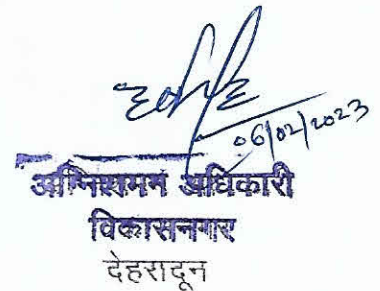 06/02/2023
अग्निशमन अधिकारी
विकासनगर
देहरादून